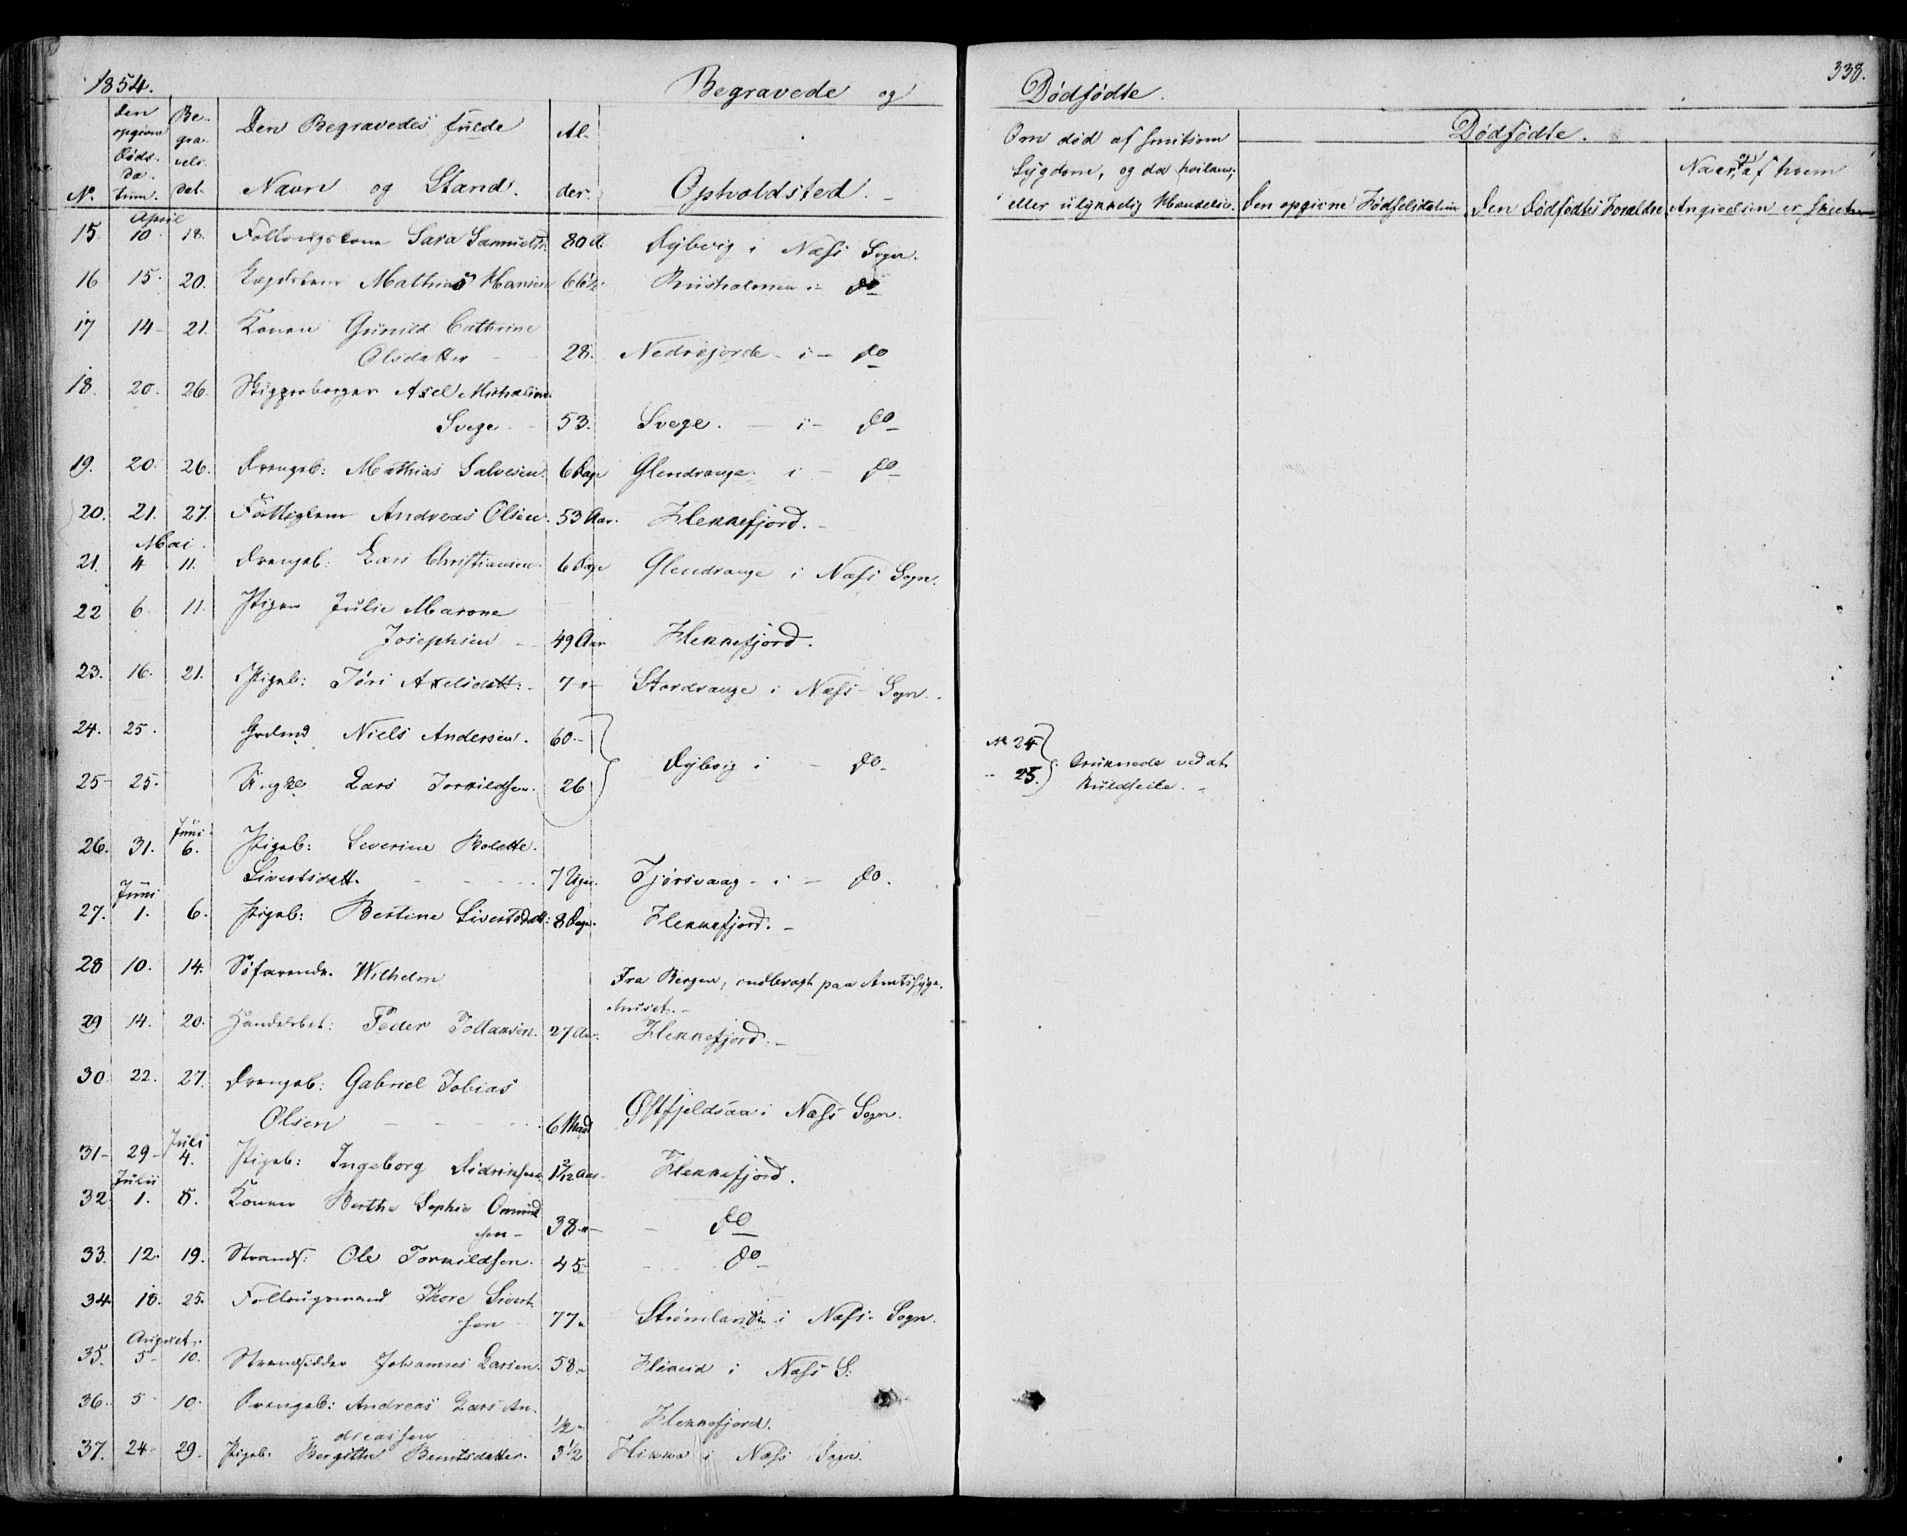 1854. Begravede og Dødfødte. 338.
No. Den opgivne Døds-datum. Begravels-dat. Den Begravedes fulde Navn og Stand. Alder. Opholdsted. Om død af smitsom Sygdom, og da hvilken; eller ulykkelig Hændelse. Dødfødte.
Den opgivne Fødselsdatum Den Dødfødtes Forældre Naar, og af hvem Angivelsen er skeet
April
15. 10 18. Sara Samuelsd. 80 A. Dybvig i Næss Sogn.
16 15. 20. Mathias Hansen 66½ i do
17 14- 21. Konen Gunild Cathrine
Olsdatter 28. Nedrefjorde - i - do
18. 20. 26. Axel
Svege 53. Svege. - i - do
19. 20. 26. Drengeb: Mathias Salvesen. 6 Dage Glendrange. i - do
20. 21. 27. Andreas Olsen. 53 Aar. Flekkefjord. -
Mai.
21. 4 11. Drengeb: Lars Christiansen. 6 Dage Glendrange i Næss Sogn.
22 6. 11. Pigen Julie Marone
Josephsen 49 Aar Flekkefjord.
23. 16. 21. Pigeb: Tøri Axelsdatt: 7 "- Stordrange i Næss Sogn.
24. 25. Niels Andersen. 60.-
Dybvig i - do. No 24
25 - 25. Ungkl Lars Torkildsen. 26 " 25. Druknede ved at
kuldseile. -
Juni
26. 31. 6. Pigeb: Severine Bolette.
Sivertsdatt. 7 Uger. Tjørsvaag - i - do.
Juni
27. 1. 6. Pigeb: Bertine Sivertsdatt: 8 Dage. Flekkefjord. -
28 10. 14. Søfarende. Wilhelm Fra Bergen, indbragt paa Amtssyge-
huset. -
29 14. 20. Peder Tollaksen. 27 Aar. Flekkefjord. -
30 22. 27. Drengeb: Gabriel Tobias
Olsen 6 Maad Østfjeldsaa i Næss Sogn.
Juli
31- 29- 4. Pigeb: Ingeborg Didriksen 1 3/12 Aar - Flekkefjord.
Julii
32. 1. 8. Konen Berthe Sophie Omund
sen - 38 "- do
33. 12. 19. Strands: Ole Torkildsen. 45 do
34 18. 25. Follaugsmand Thore Sivert
sen 77 " Strømland i Næss. Sogn.
August.
35. 5- 10. Strandsidder Johannes Larsen. 58 " i Næss S:
36. 5 10. Drengeb: Andreas Lars An-
dreassen ½ " Flekkefjord.
37. 24- 29. Pigeb. Bergitte Berntsdatter. 3½ i Næss Sogn.